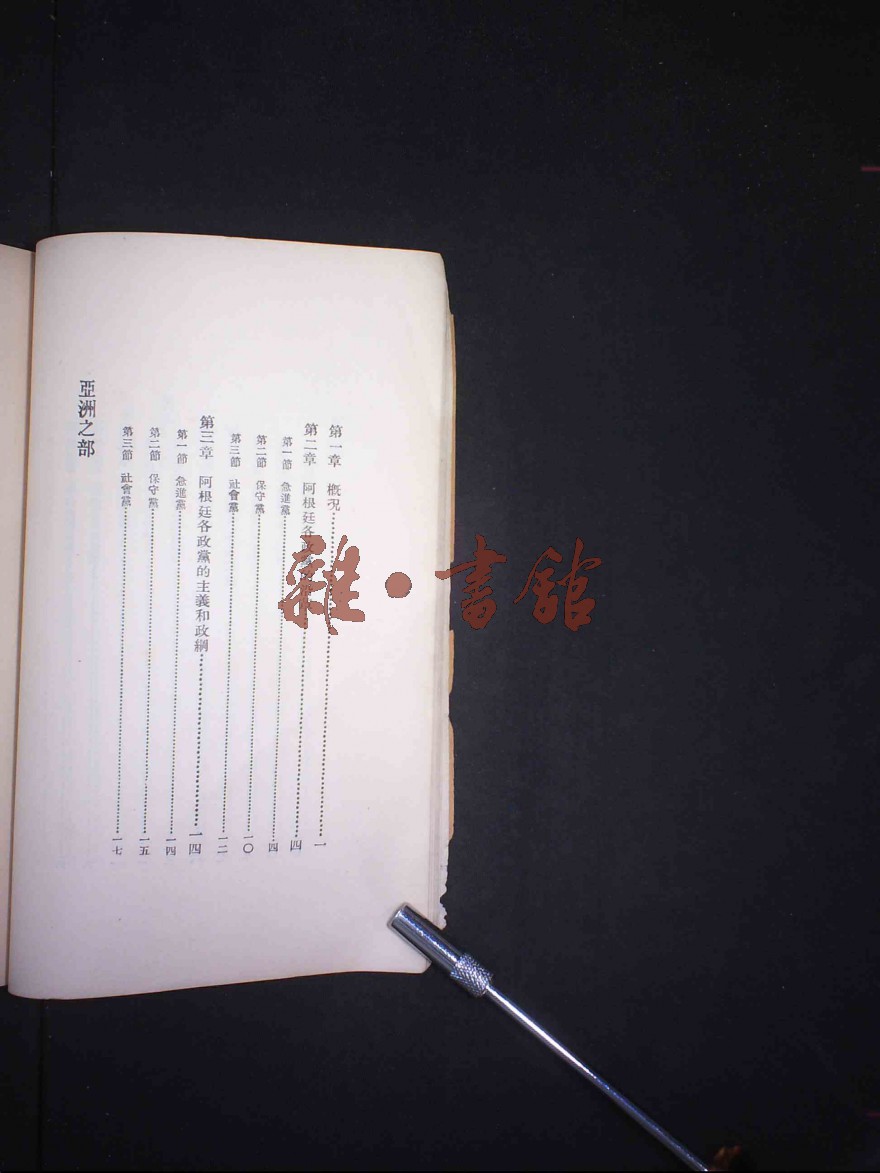 第一章 概況……一
第二章 阿根廷各政黨……四
第一節 急進黨……四
第二節 保守黨……一〇
第三節 社會黨……一二
第三章 阿根廷各政黨的主義和政綱……一四
第一節 急進黨……一四
第二節 保守黨……一五
第三節 社會黨……一七
亞洲之部
雜·書館